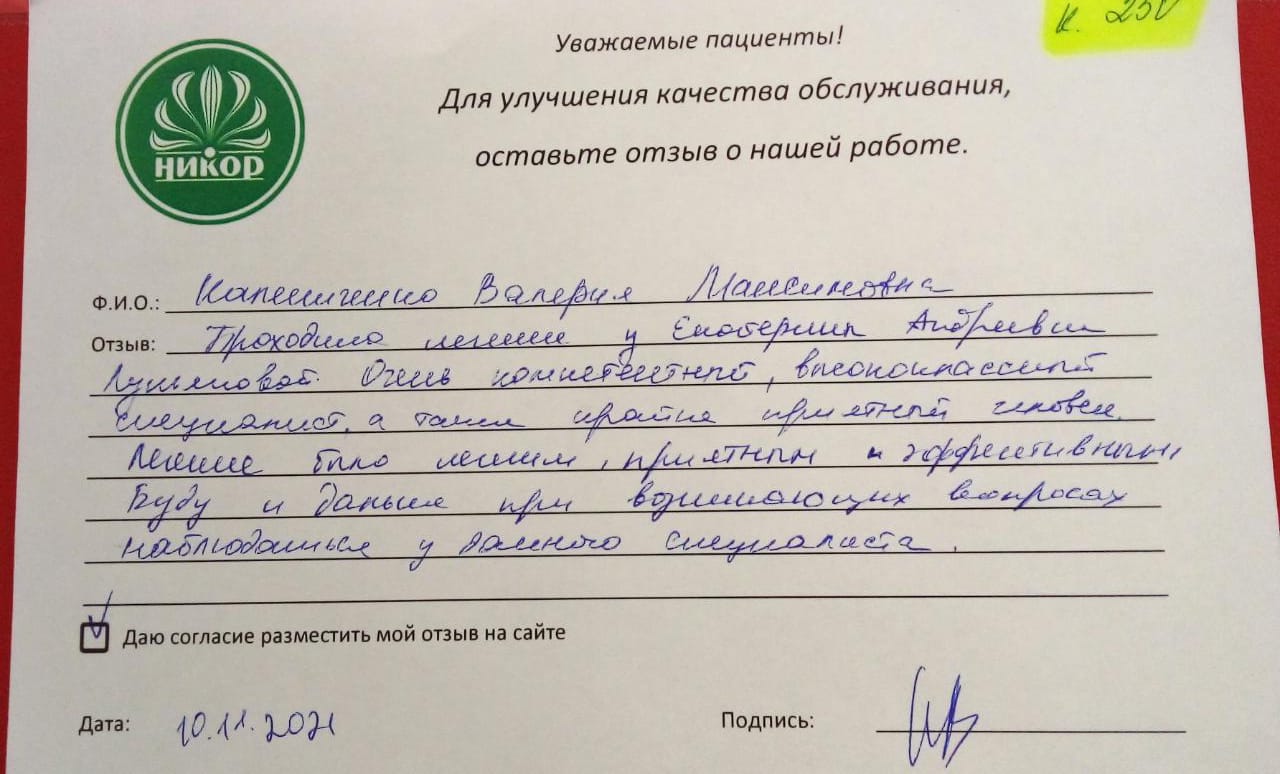 к. 250
Уважаемые пациенты!
Для улучшения качества обслуживания,
оставьте отзыв о нашей работе.
НИКОР
Ф.И.О.: Валерия Максимовна
Отзыв: Проходила лечение у Екатерины Андреевны
Лукьяновой. Очень компетентный, высококлассный
специалист, а также крайне приятный человек.
Лечение было легким, приятным и эффективным,
Буду и дальше при возникающих вопросах
наблюдаться у данного специалиста.
Даю согласие разместить мой отзыв на сайте
Дата: 10.11.2021 Подпись: